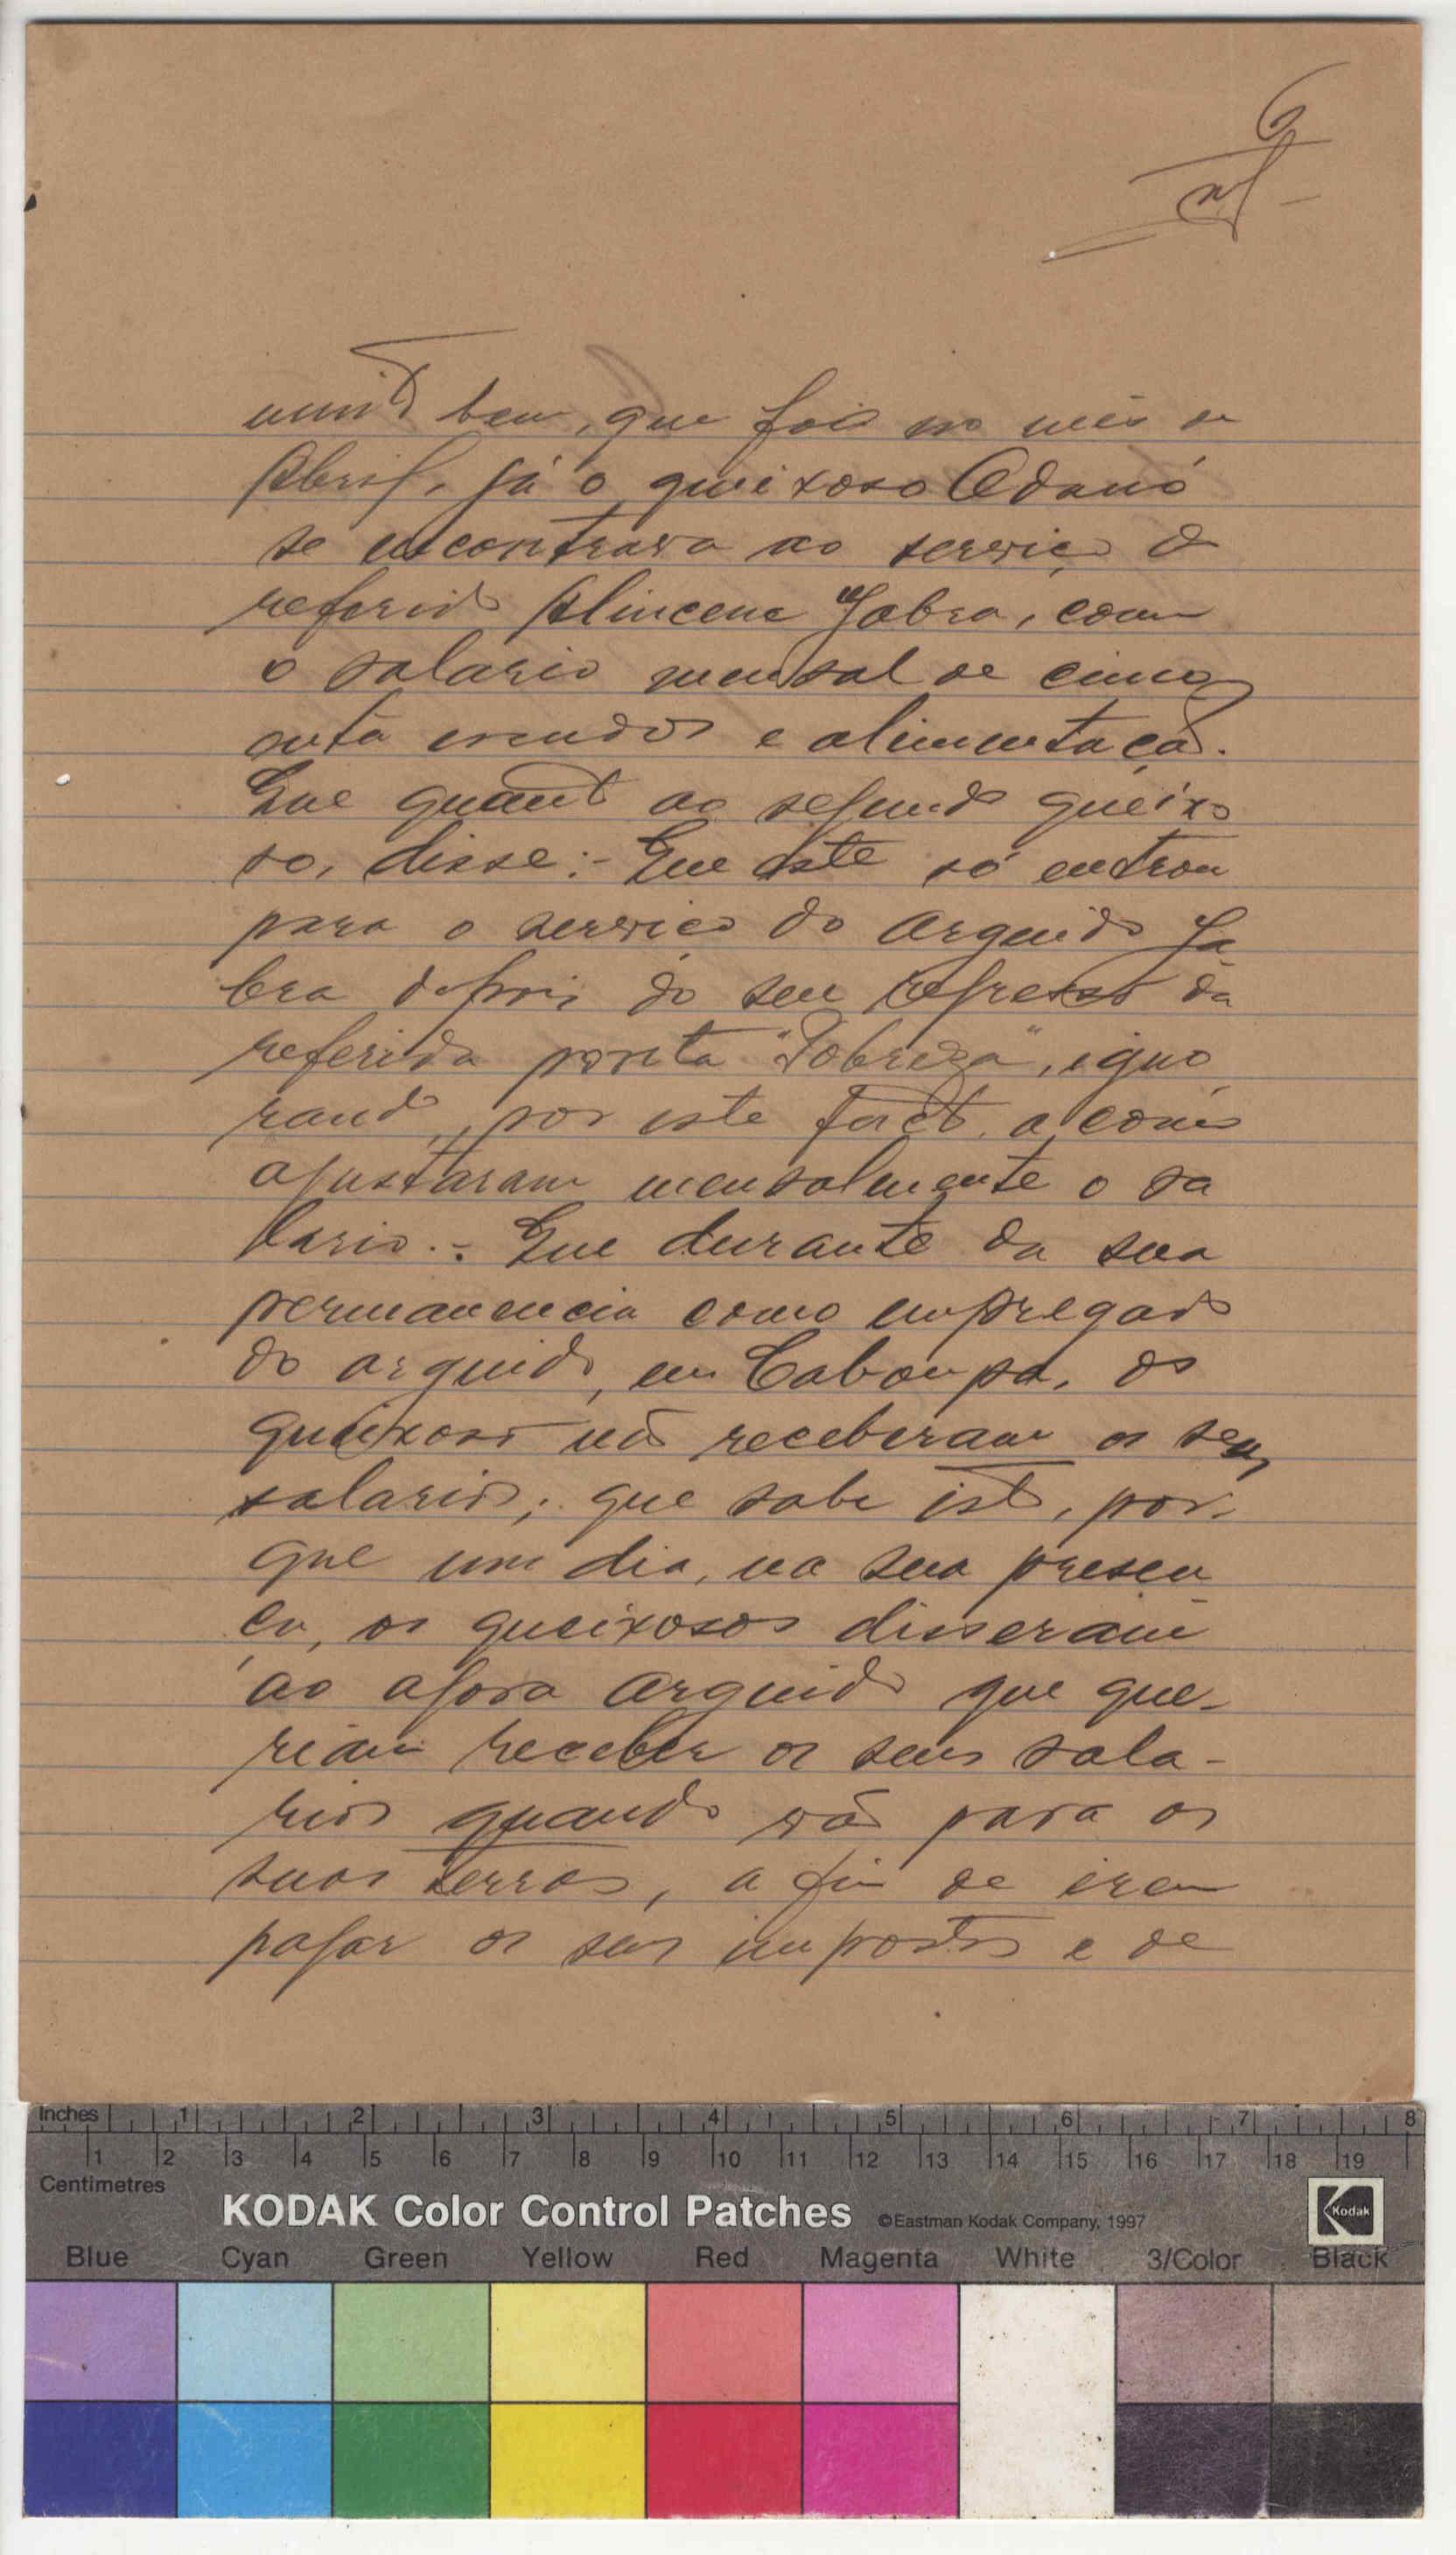 6
muito bem, que foi no mês de
Abril, já o queixoso Adanó
se encontrava ao serviço do
referido Alincene Jabra, com
o salario mensal de cinco
enta escudos e alimentação.
Que quanto ao segundo queixo
so, disse:- Que este só entrou
para o serviço do arguido Ja
bra depois do seu regresso da
referida ponta "Pobreza", igno
rando, por este facto, a como
ajustaram mensalmente o sa
lario.- Que durante da sua
permanencia como empregado
do arguido, em Cabompa, os
queixosos não receberam os seus
salarios; que sabe isto, por-
que um dia, na sua presen
ça, os queixosos disseram
ao agora arguido que que-
riam receber os seus sala-
rios quando vão para as
suas terras, a fim de irem
pagar os seus impostos e de
Inches 1 2 3 4 5 6 7 8
1 2 3 4 5 6 7 8 9 10 11 12 13 14 15 16 17 18 19
Centimetres
KODAK Color Control Patches ©Eastman Kodak Company, 1997 Kodak
Blue Cyan Green Yellow Red Magenta White 3/Color Black